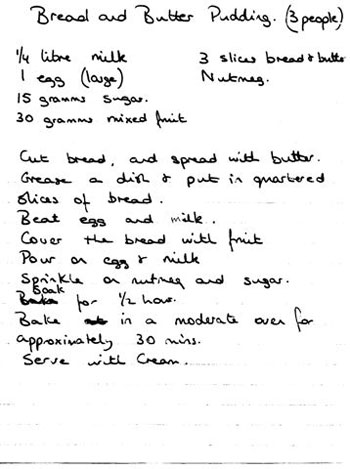 Bread and Butter Pudding. (3 people)
1/4 litre milk 3 slices bread & butter
1 egg (large) Nutmeg.
15 gramms sugar.
30 gramms mixed fruit
Cut bread, and spread with butter.
Grease a dish & put in quartered
slices of bread.
Beat egg and milk.
Cover the bread with fruit
Pour on egg & milk
Sprinkle on nutmeg and sugar.
Soak
for 1/2 hour.
Bake in a moderate oven for
approximately 30 mins.
Serve with Cream.